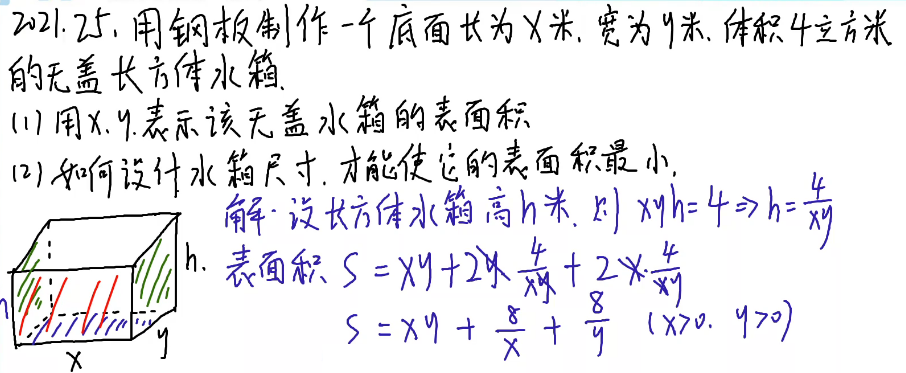 2021.25. 用钢板制作一个底面长为x米. 宽为y米. 体积4立方米
的无盖长方体水箱.
(1) 用x.y.表示该无盖水箱的表面积
(2) 如何设计水箱尺寸. 才能使它的表面积最小.
解: 设长方体水箱高h米. 则 xyh=4⇒h=4/xy
h. 表面积 S=xy+2y·4/xy+2x·4/xy
S=xy+8/x+8/y (x>0. y>0)
y
x